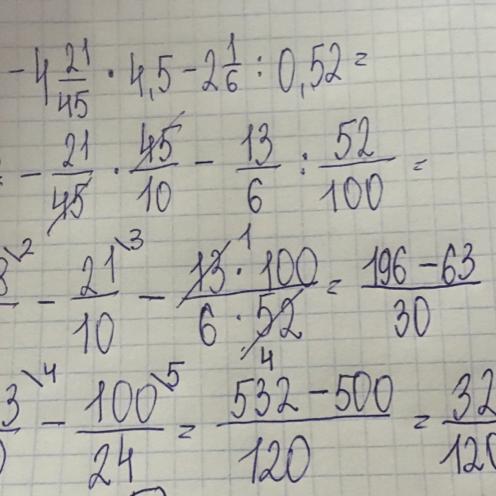 - 4 21/45 · 4,5 - 2 1/6 : 0,52 =
- 21/45 · 45/10 - 13/6 : 52/100 =
8\2 - 21\3/10 - 13 1 · 100/6 · 52 4 = 196 - 63/30
3\4 - 100\5/24 = 532 - 500/120 = 32/120